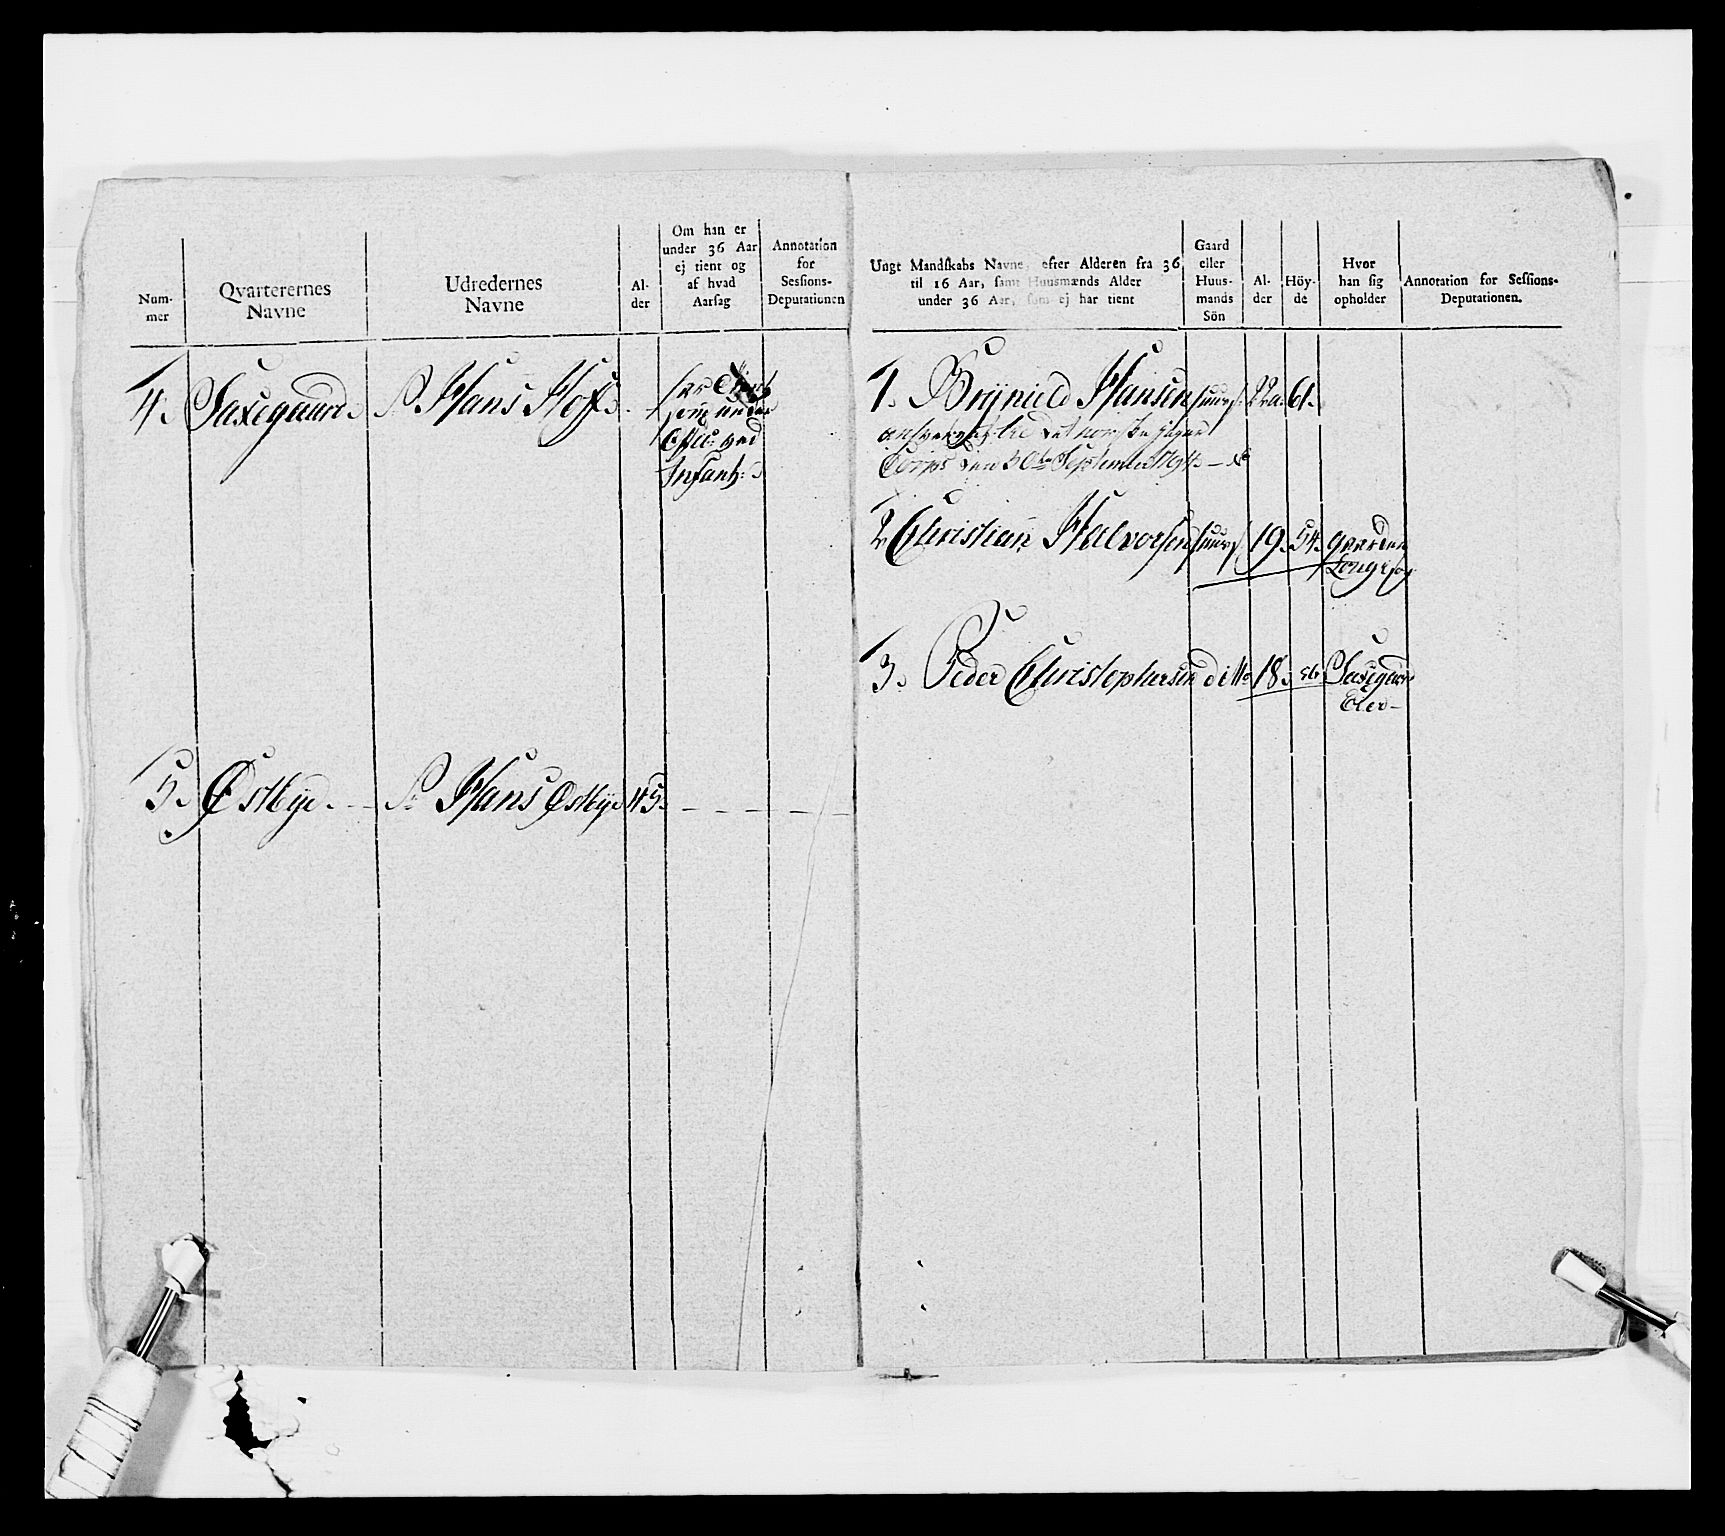 Num-
mer
Qvarterernes
Navne
Udredernes
Navne
Al-
der
Om han er
under 36 Aar
ej tient og
af hvad
Aarsag
Annotation
for
Sessions-
Deputationen
Ungt Mandskabs Navne, efter Alderen fra 36
til 16 Aar, samt Huusmænds Alder
under 36 Aar, som ej har tient
Gaard
eller
Huus-
mands
Sön
Al-
der
Höy-
de
Hvor
han sig
opholder
Annotation for Sessions-
Deputationen.
4. Saxegaard. Hans Hof
som under
Offic: ved
Infant:
1. Brynild Hansen huus 22 a. 61.
det norske Jæger
Corps den 30te September 1794
2 Christian Halvorsen huus 19. 54. gaarden
3. Peder Christophersen ditto 18. 56 Saxegaard
Eier
5. Østbye. Hans Østbye 45.